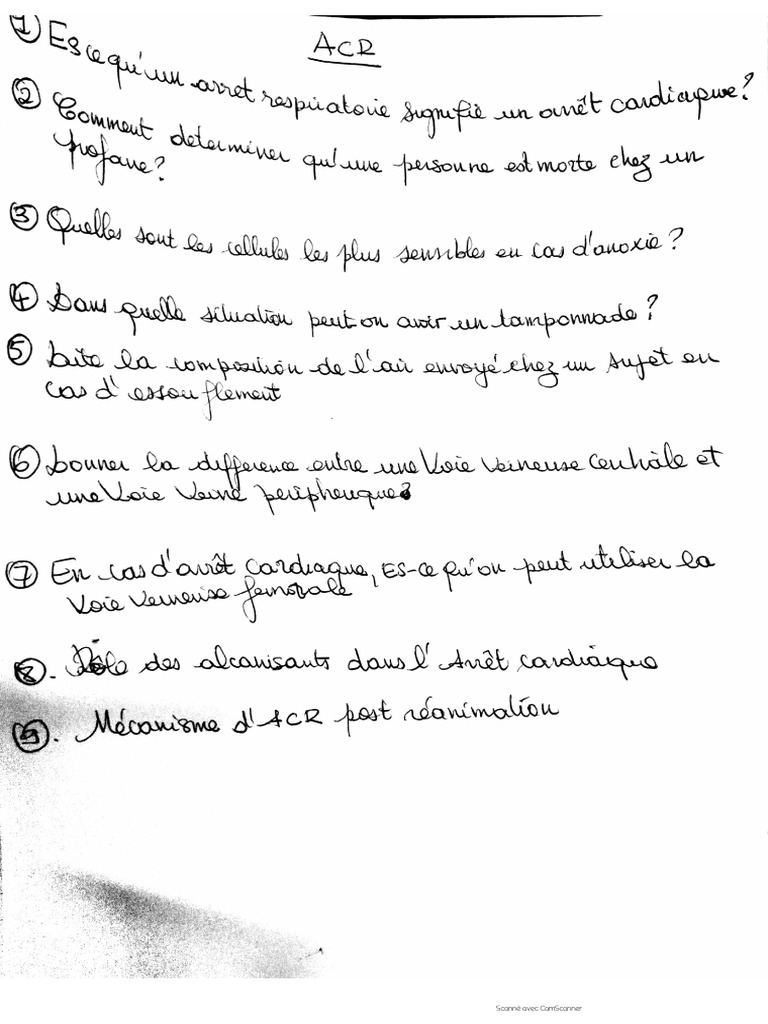 ACR
① Es ce qu'un arret respiratoire signifie un arrêt cardiaque?
② Comment determiner qu'une personne est morte chez un
profane?
③ Quelles sont les cellules les plus sensibles en cas d'anoxie?
④ Dans quelle situation peut on avoir un tamponnade?
⑤ Cite la composition de l'air envoyé chez un sujet en
cas d'essouflement
⑥ Donner la difference entre une Voie Veineuse Centrale et
une Voie Veine peripherique?
⑦ En cas d'arrêt Cardiaque, Es-ce qu'on peut utiliser la
Voie Veineuse femorale
⑧. Rôle des alcanisants dans l'Arrêt cardiaque
⑨. Mécanisme d'ACR post réanimation
Scanné avec CamScanner